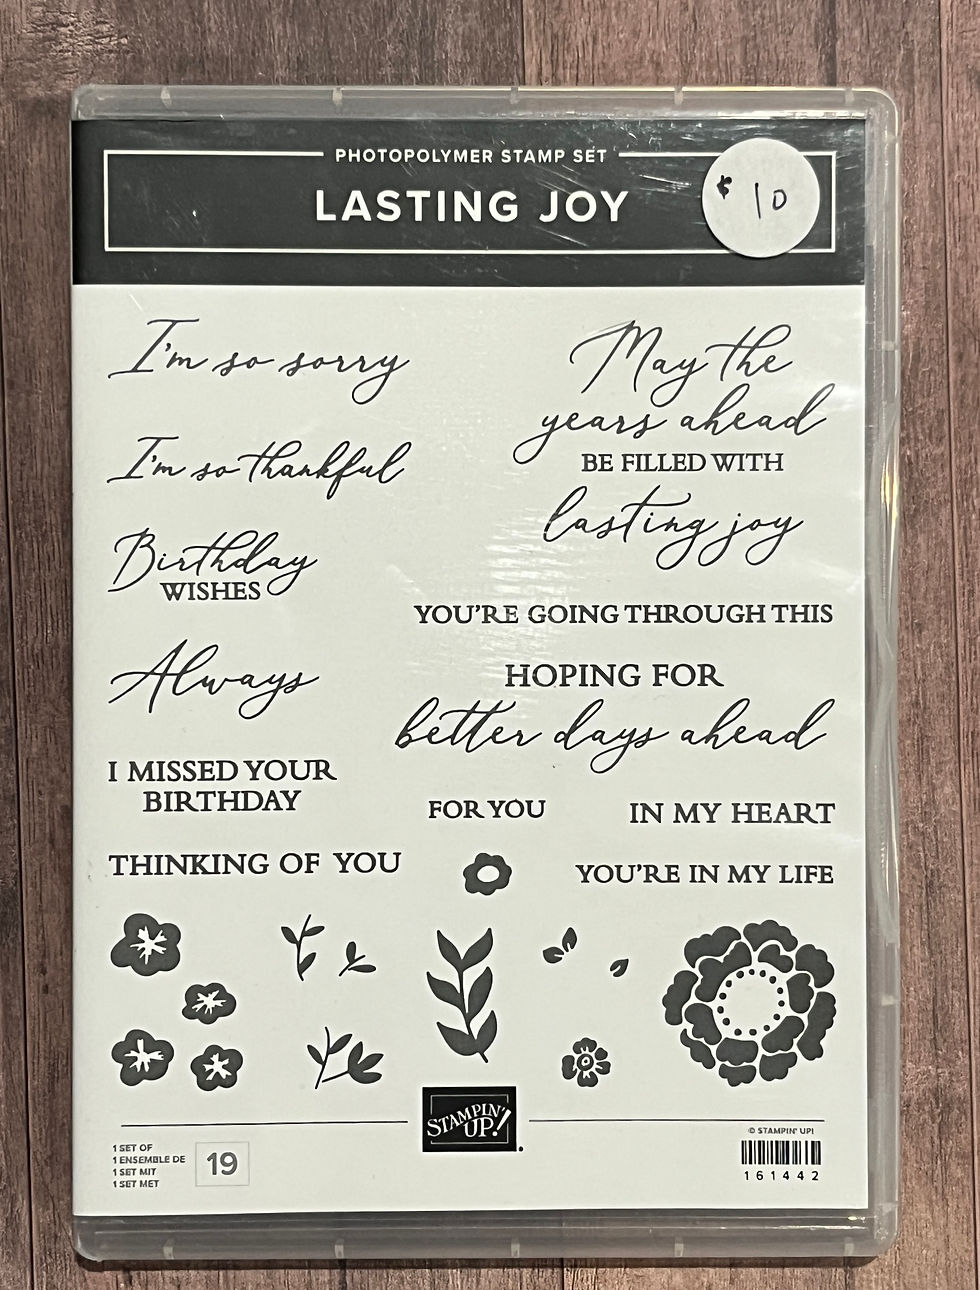 PHOTOPOLYMER STAMP SET
LASTING JOY
$10
I'm so sorry
I'm so thankful
Birthday
WISHES
Always
I MISSED YOUR
BIRTHDAY
THINKING OF YOU
May the
years ahead
BE FILLED WITH
lasting joy
YOU'RE GOING THROUGH THIS
HOPING FOR
better days ahead
FOR YOU
IN MY HEART
YOU'RE IN MY LIFE
STAMPIN'
UP!
1 SET OF
1 ENSEMBLE DE
1 SET MIT
1 SET MET
19
© STAMPIN' UP!
161442